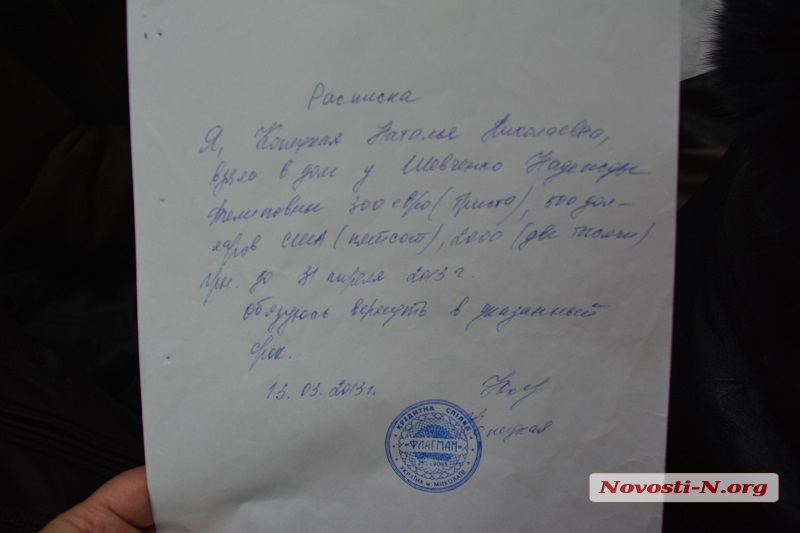 Расписка
Я, Копецкая Наталья Николаевна,
взяла в долг у Шевченко Надежды
Филиповны 300 евро (триста), 500 дол-
ларов США (пятсот), 2000 (две тысячи)
грн. до 31 апреля 2013 г.
Обязуюсь вернуть в указанный
срок.
13.03.2013г.
Копецкая
КРЕДИТНА СПІЛКА
"ФЛАГМАН"
УКРАЇНА м. МИКОЛАЇВ
Novosti-N.org